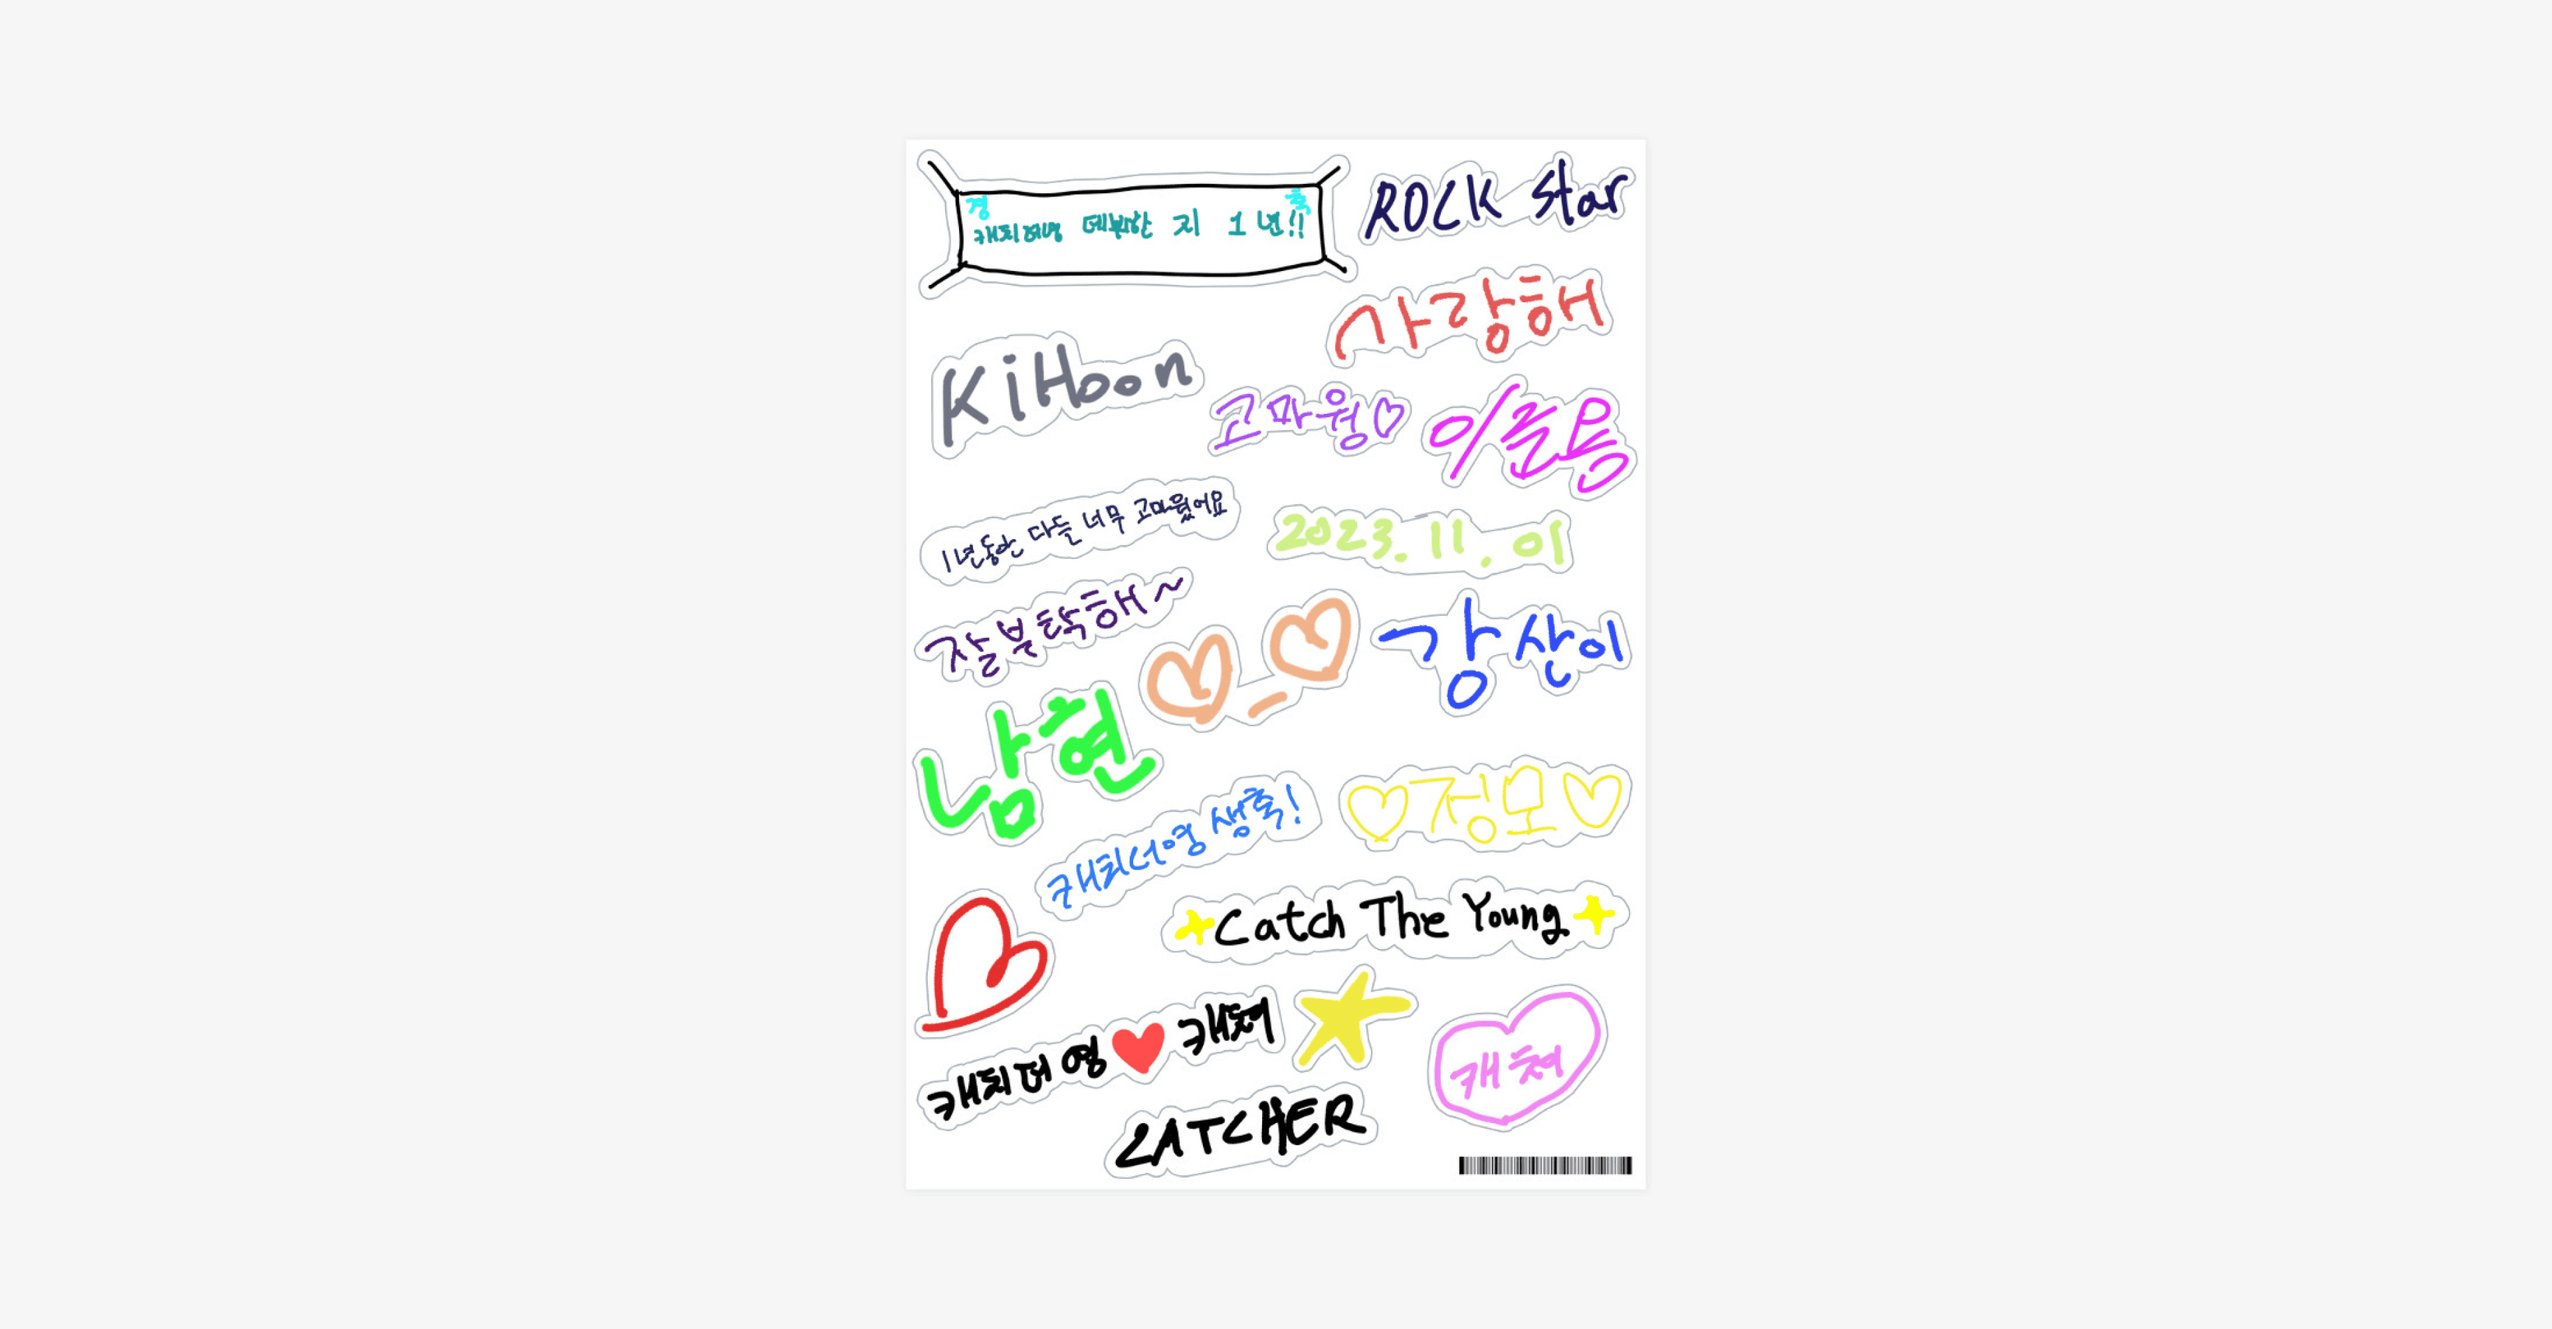 경 축
캐치더영 데뷔한 지 1년!!
ROCK Star
사랑해
KiHoon
고마웡♡
이준용
1년동안 다들 너무 고마웠어요
2023.11.01
잘부탁해~
♡_♡
강산이
남현
♡정모♡
캐치더영 생축!
Catch The Young
캐치더영♥캐처
캐처
CATCHER